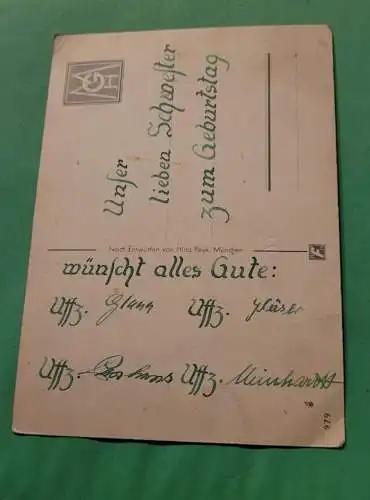 Unser
lieben Schwester
zum Geburtstag
Nach Entwürfen von Hilla Peyk, München
wünscht alles Gute:
Uffz. Glann Uffz. Gläser
Uffz. Uffz. Meinhardt
979